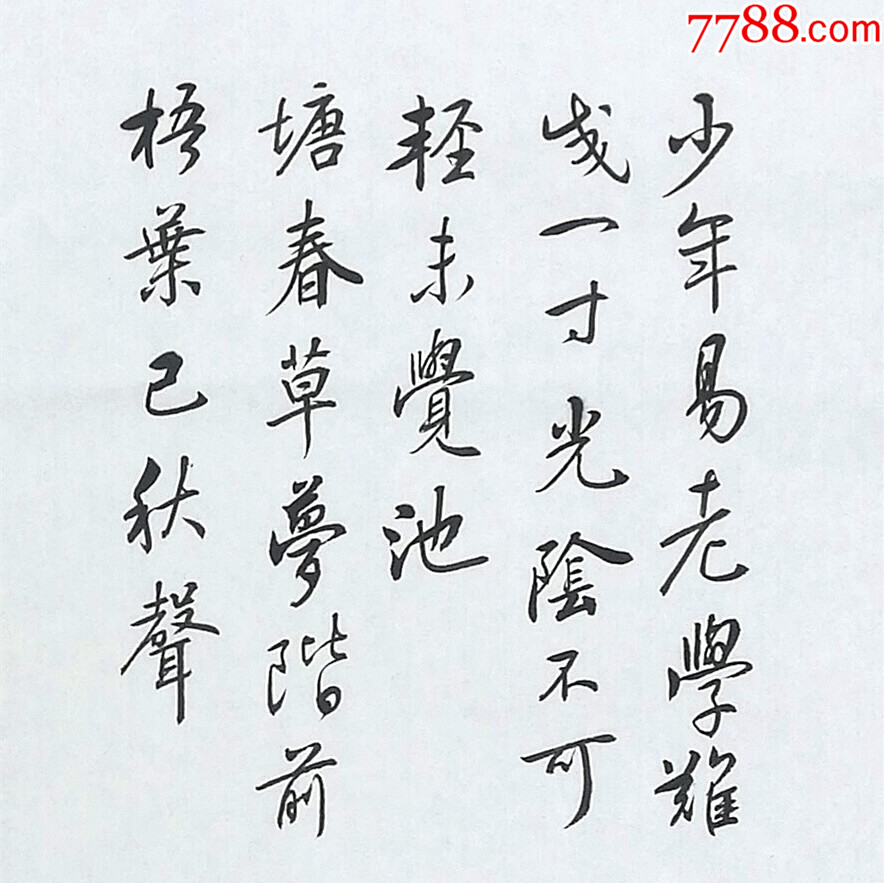 7788.com
少年易老學難
成一寸光陰不可
輕未覺池
塘春草夢階前
梧葉已秋聲